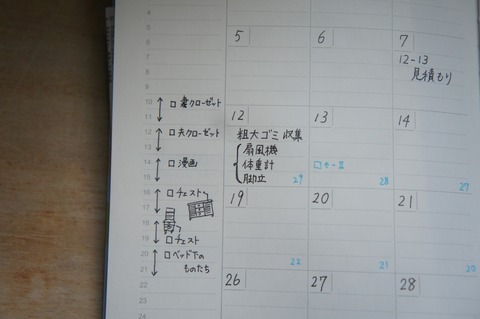 4
5
6
7
8
9
10
11
12
13
14
15
16
17
18
19
20
21
22
□ 妻クローゼット
□ 夫クローゼット
□ 漫画
□ チェスト
□ チェスト
□ ベッド下の
ものたち
5
6
7
12-13
見積もり
12
粗大ゴミ 収集
扇風機
体重計
脚立
29
13
28
14
27
19
22
20
21
21
20
26
27
28